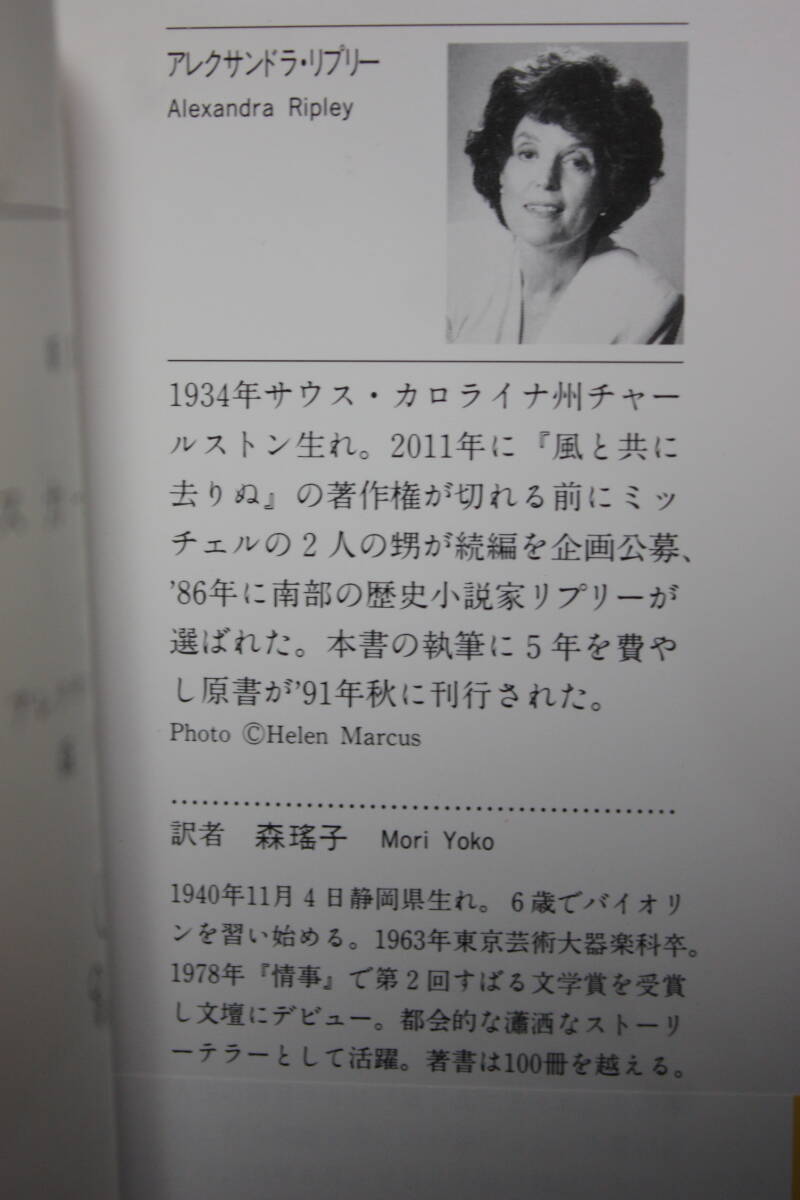 アレクサンドラ・リプリー
Alexandra Ripley
1934年サウス・カロライナ州チャー
ルストン生れ。2011年に『風と共に
去りぬ』の著作権が切れる前にミッ
チェルの2人の甥が続編を企画公募、
'86年に南部の歴史小説家リプリーが
選ばれた。本書の執筆に5年を費や
し原書が'91年秋に刊行された。
Photo ©Helen Marcus
訳者 森瑤子 Mori Yoko
1940年11月4日静岡県生れ。6歳でバイオリ
ンを習い始める。1963年東京芸術大器楽科卒。
1978年『情事』で第2回すばる文学賞を受賞
し文壇にデビュー。都会的な瀟洒なストーリ
ーテラーとして活躍。著書は100冊を越える。